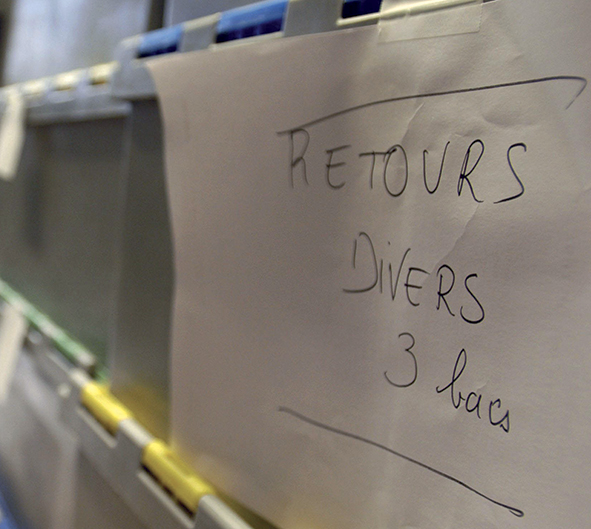 RETOURS
DIVERS
3 bacs